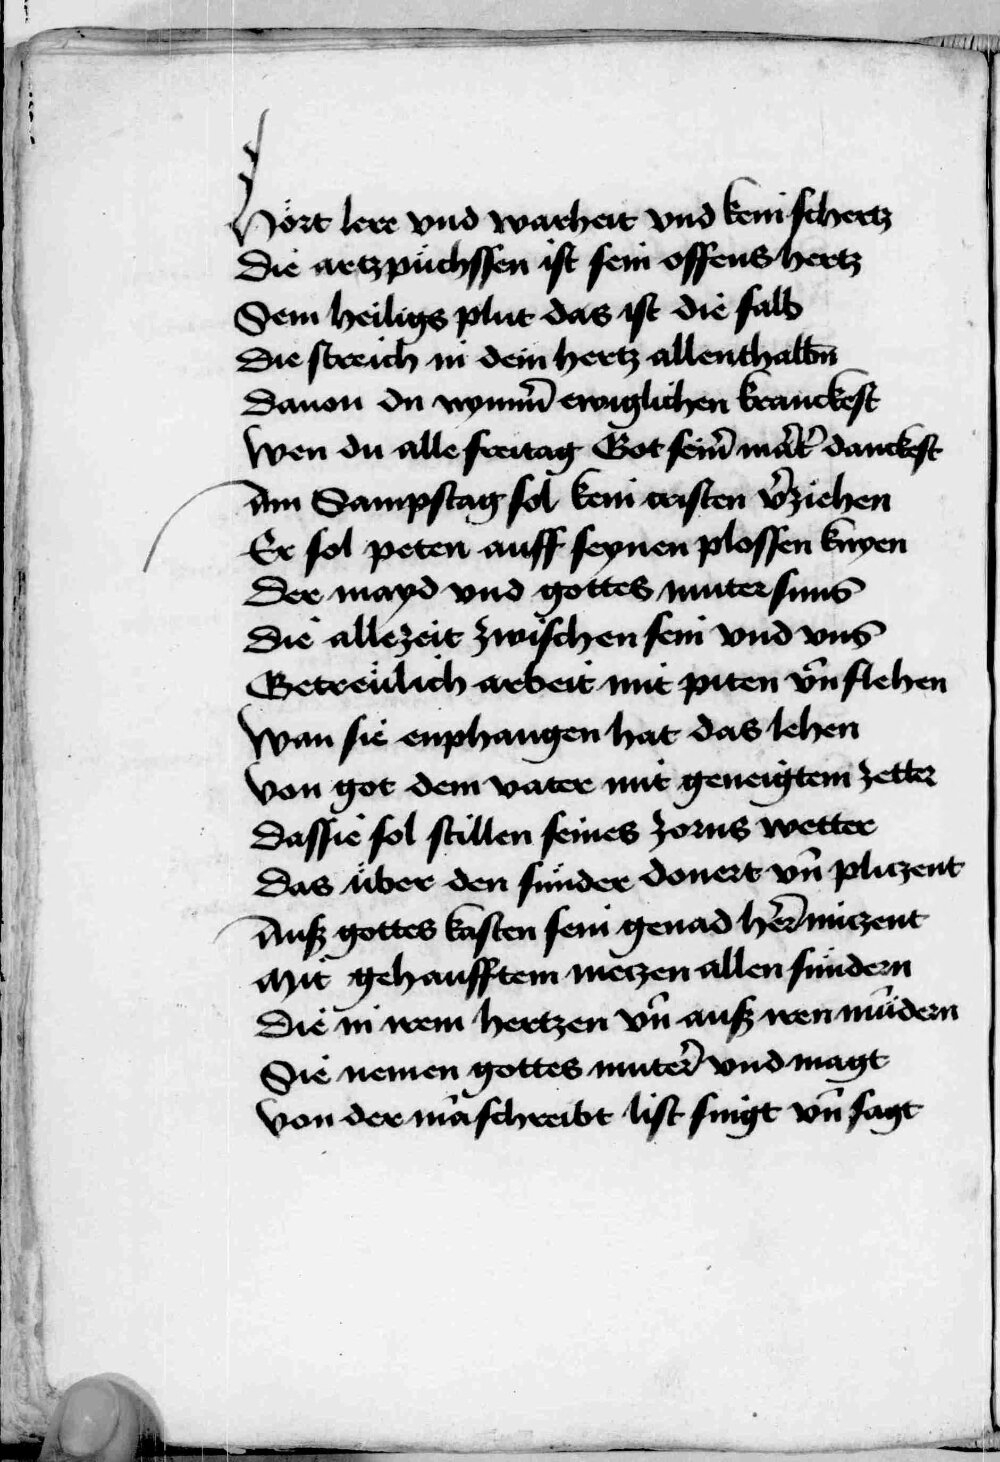 Hört lere vnd warheit vnd kein schertz
Die artzpüchssen ist sein offens hertz
Sein heiligs plut das ist die salb
Die streich in dein hertz allenthalbn̄
Dauon du nym̄er ewiglichen kranckest
Wen du alle freitag Got sein̄ mart̄ danckest
Am Sampstag sol kein cristen v̄ziehen
Er sol peten auff seynen plossen knyen
Der mayd vnd gottes muter suns
Die allezeit zwischen sein vnd vns
Getreülich arbeit mit piten vn̄ flehen
Wan sie enphangen hat das lehen
Von got dem vater mit geneigtem zetter
Das sie sol stillen seines zorns wetter
Das über den sünder donert vn̄ pliczent
Auß gottes kasten sein genad her miczent
Mit gehaufftem meczen allen sündern
Die in irem hertzen vn̄ auß iren mündern
Sie nemen gottes muter vnd magt
Von der man schreibt list singt vn̄ sagt